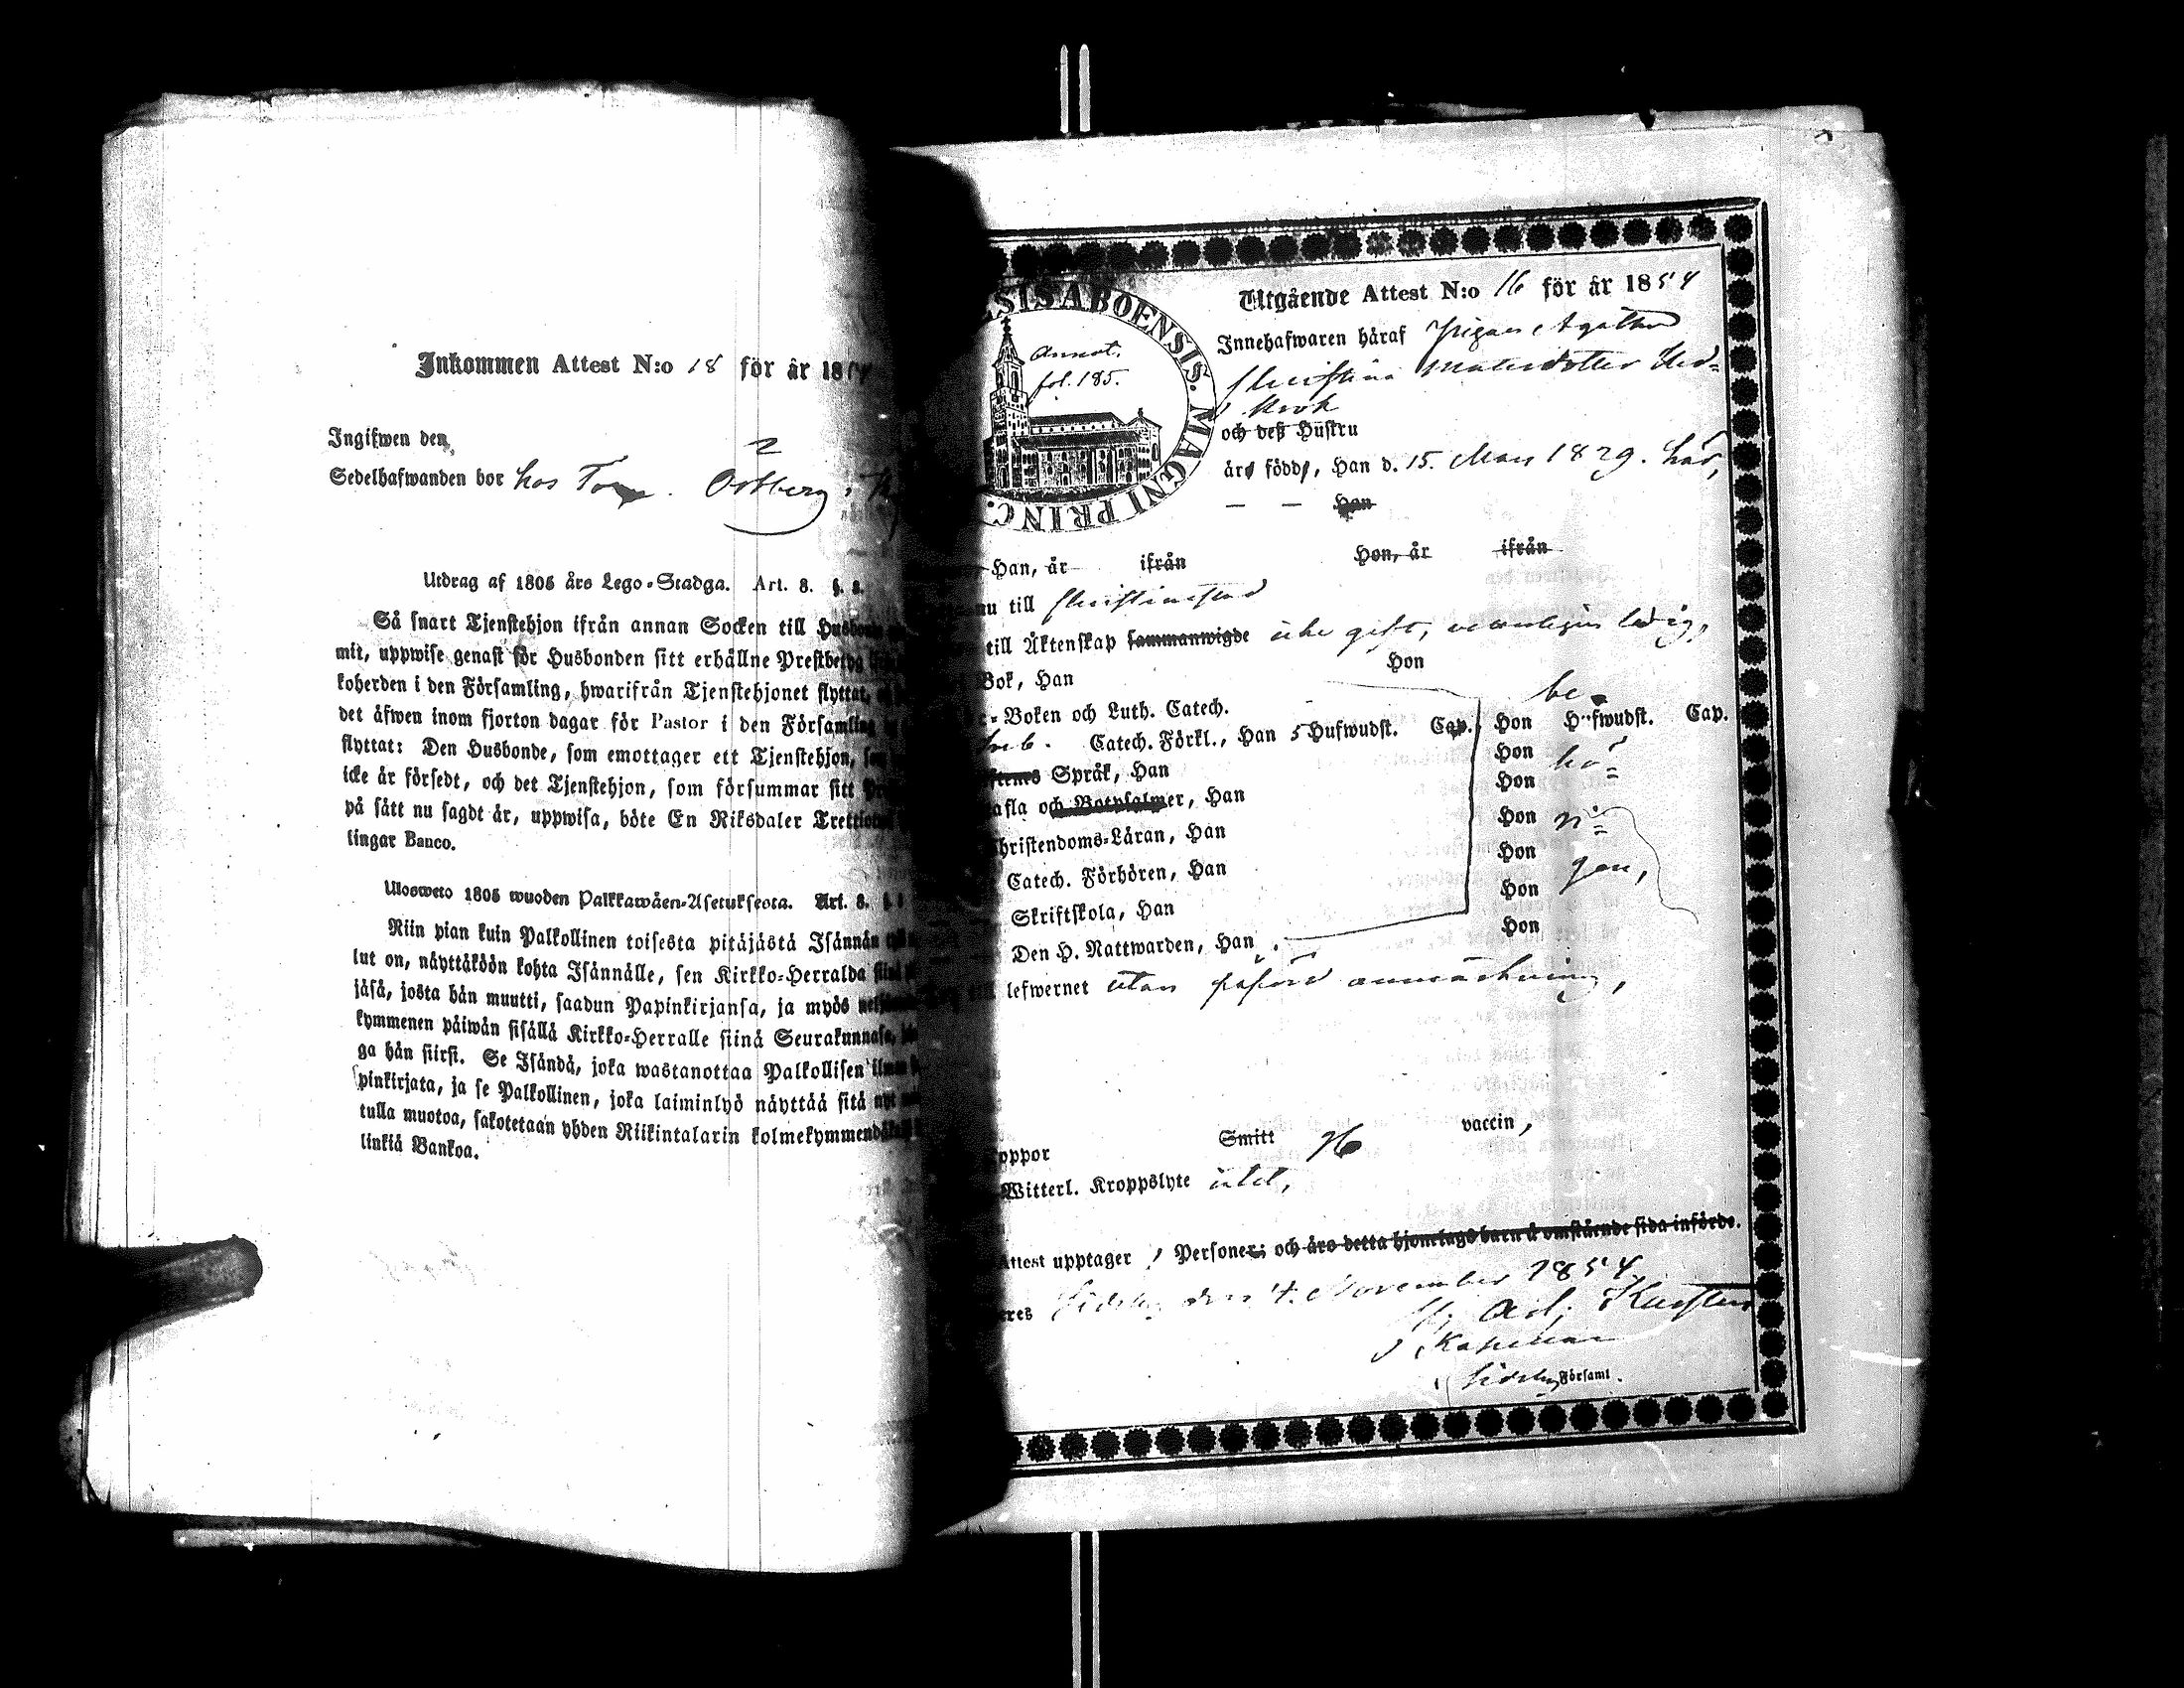 Inkommen Attest N:o 18 för år 18
Ingifwen den
Sedelhafwanden bor hos
2
Utdrag af 1805 års Lego-Stadga. Art. 8. §. 2.
Så snart Tjenstehjon ifrån annan Socken till
mit, uppwise genast för Husbonden sitt erhållne Prestbetyg
koherden i den Församling, hwarifrån Tjenstehjonet flyttat,
det äfwen inom fjorton dagar för Pastor i den Församling
flyttat: Den Husbonde, som emottager ett Tjenstehjon,
icke är försedt, och det Tjenstehjon, som försummar sitt
på sätt nu sagdt är, uppwisa, böte En Riksdaler
lingar Banco.
Ulosweto 1805 wuoden Palkkawäen-Asetuksesta. Art. 8.
Niin pian kuin Palkollinen toisesta pitäjästä Isännän
lut on, näyttäköön kohta Isännälle, sen Kirkko-Herralda
jäsä, josta hän muutti, saadun Papinkirjansa, ja myös
kymmenen päiwän sisällä Kirkko-Herralle siinä Seurakunnasa,
ga hän siirsi. Se Isändä, joka wastanottaa Palkollisen ilman
pinkirjata, ja se Palkollinen, joka laiminlyö näyttää sitä nyt
tulla muotoa, sakotetaan yhden Riikintalarin
linkiä Bankoa.
SIS ABOENSIS. MAGNI PRINC.
Annot.
fol. 185.
Utgående Attest N:o 16 för år 1854
Innehafwaren häraf Pigan Agatha
Christina
och deß Hustru
äro födde, Han d. 15. Mars 1829. här,
— — Han
Han, år ifrån Hon, år ifrån
nu till Christinestad
till Äktenskap sammanwigde icke gift, ledig,
Bok, Han Hon
Boken och Luth. Catech. be-
Catech. Förkl., Han 5 Hufwudst. Cap. Hon Hufwudst. Cap.
Språk, Han Hon hö-
tafla och Botpsalmer, Han Hon
Christendoms-Läran, Han Hon ri-
Catech. Förhören, Han Hon gen,
Skriftskola, Han Hon
Den H. Nattwarden, Han Hon
till lefwernet utan påförd anmärkning,
koppor Smitt vaccin,
Witterl. Kroppslyte utel,
Attest upptager 1 Personer; och äro detta hjonelags barn å omstående sida införde.
Sideby den 4. November 1854
Kapellan
Sideby Församl.